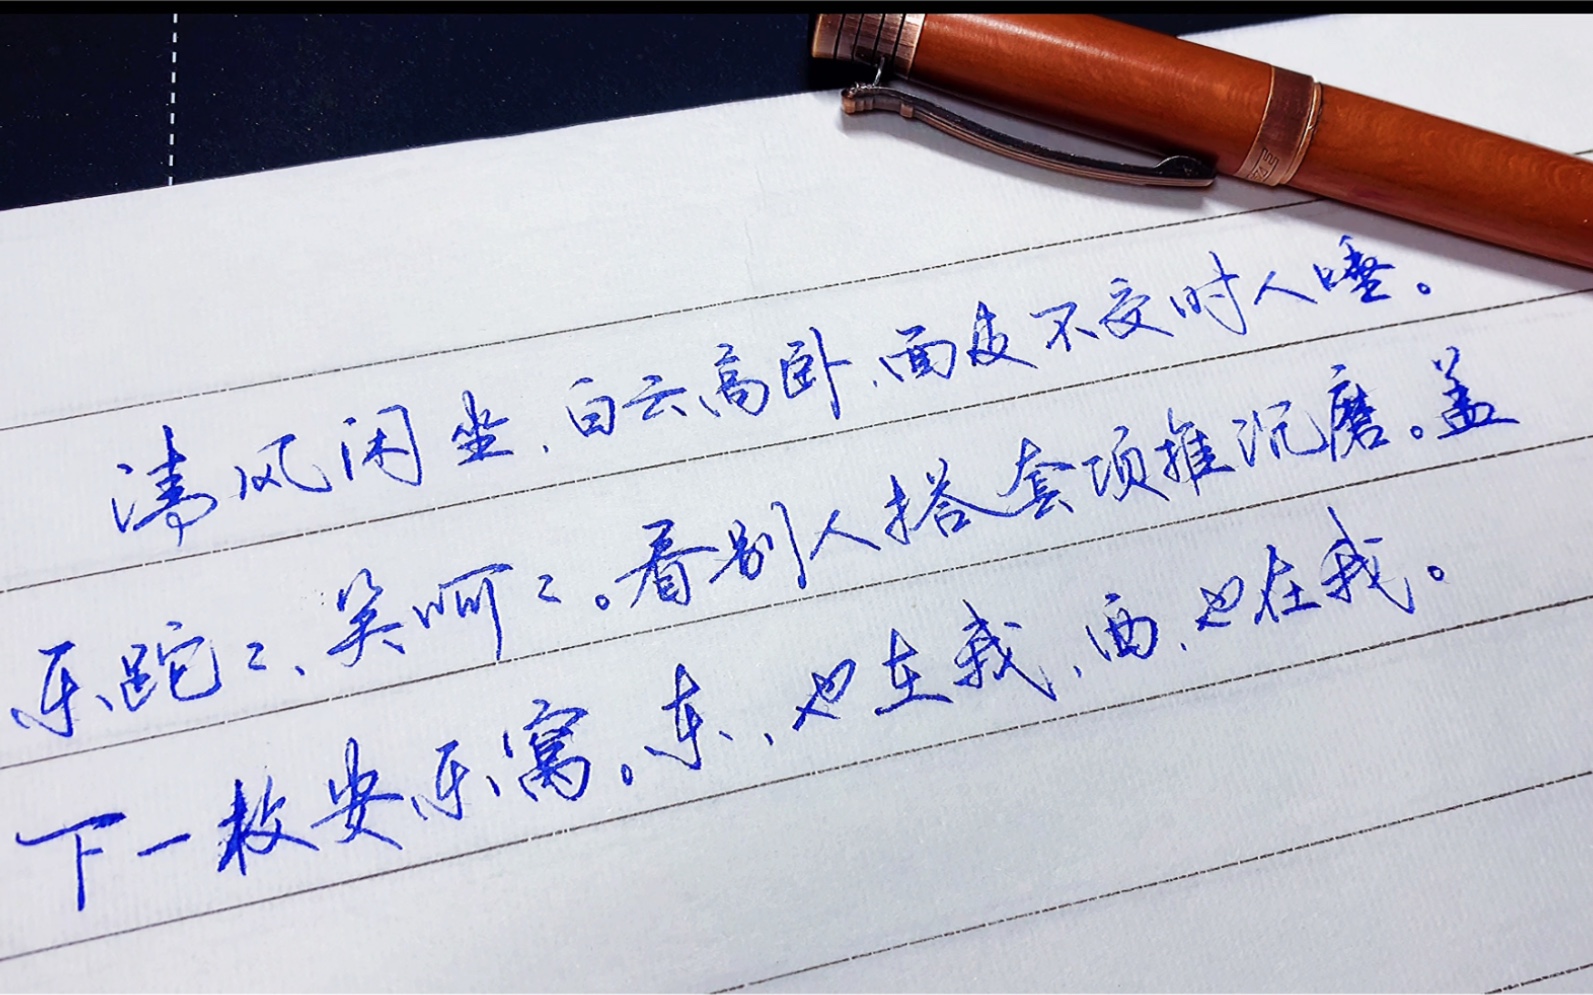 清风闲坐、白云高卧、面皮不交时人唾。
乐跎〻、笑呵〻。看别人搭套项推沉磨。盖
下一枚安乐窝。东、也在我、西、也在我。